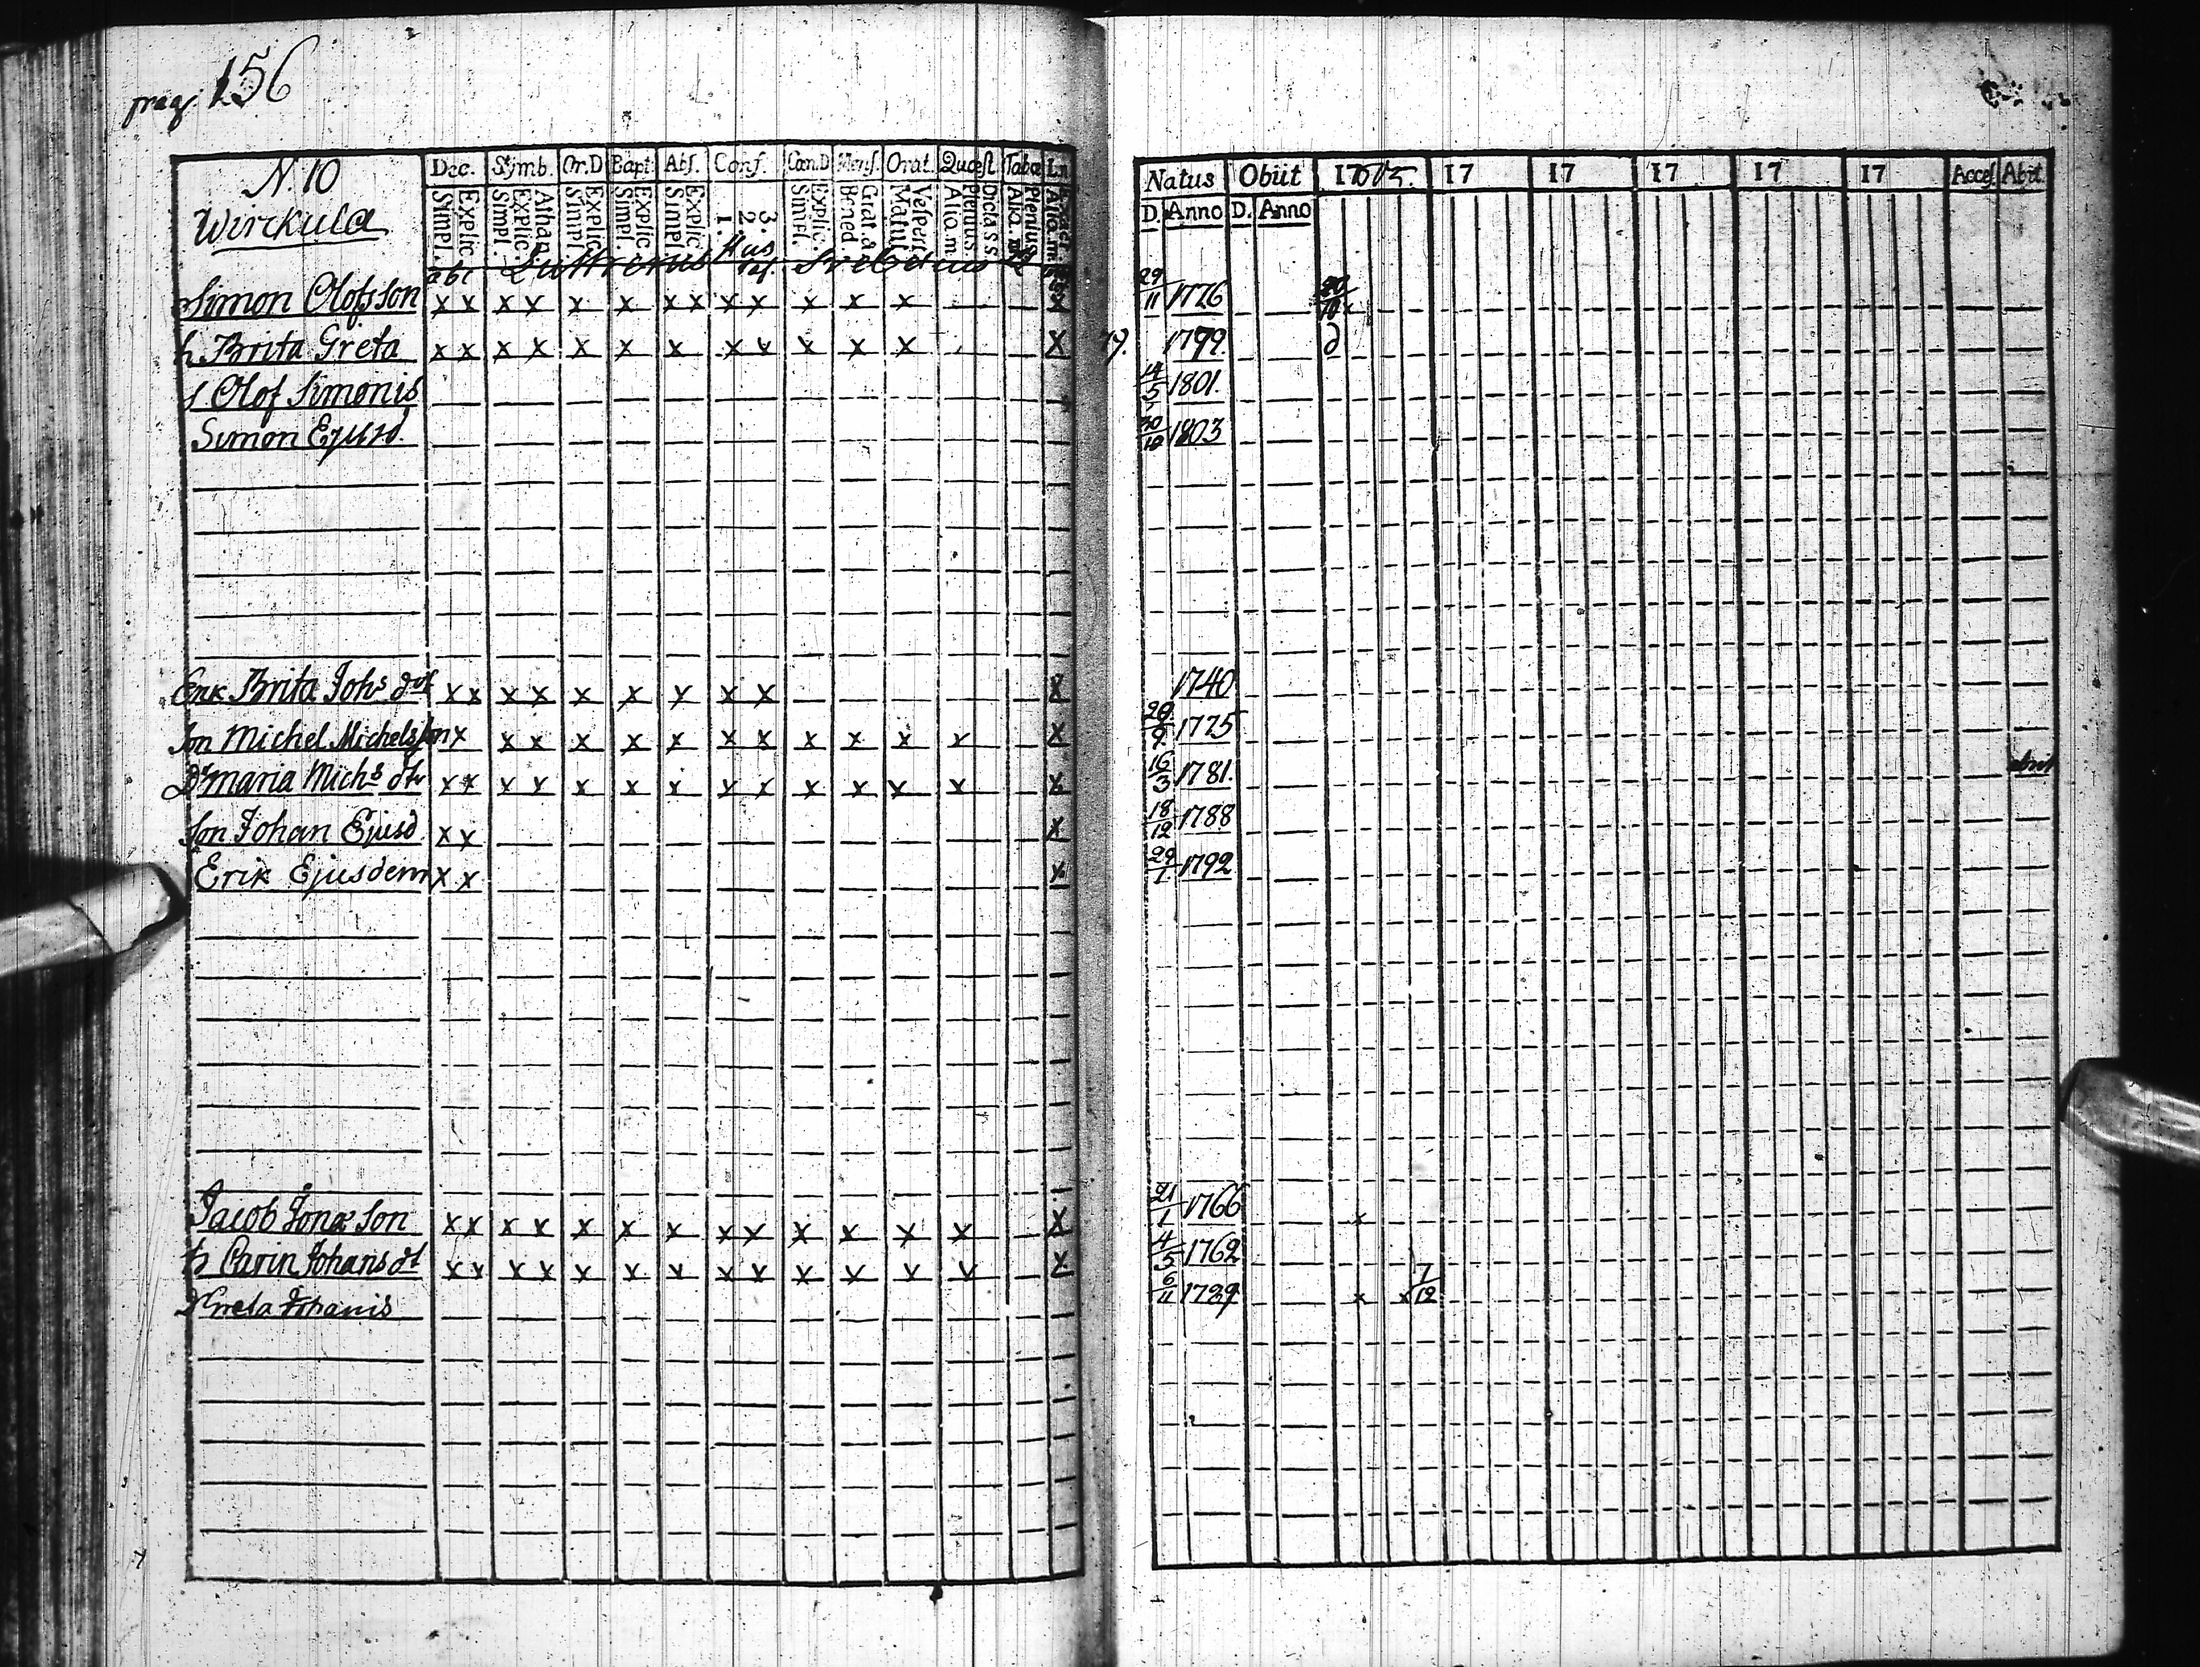 pag. 156
N. 10
Wirkula
Dec. Symb. Or.D Bapt. Abs. Conf. Cœn.D Mens. Orat. Quæst Tabæ
Simpl. Explic. Simpl. Explic. Athan. Simpl. Explic. Simpl. Explic. Simpl. Explic. 1. 2. 3. Simpl. Explic. Bened Grat. a Matut. Vesper. Alio.m Plenius Dicta s s. Aliq. m Plenius
abc Lutherus Hus taf. Svebelius
Simon Olofsson x x x x x x x x x x x x x x
h. Brita Greta x x x x x x x x x x x x x
s Olof Simonis
Simon Ejusd.
Enk Brita Johs dot x x x x x x x x x x
Son Michel Michelsson x x x x x x x x x x x x x
Dr Maria Michs dtr x x x x x x x x x x x x x x
Son Johan Ejusd x x x
Erik Ejusdem x x x
Jacob Jonæ Son x x x x x x x x x x x x x x
h Carin Johansdt x x x x x x x x x x x x x x
Dr Greta Johanis
Natus Obiit 17 17 17 17 17 17 Acces. Abit
D. Anno D. Anno
29/11 1776
79. 1799.
14/5 1801.
30/10 1803
1740
1775
16/3 1781. abiit
18/12 1788
29/1 1792
21/1 1766 x
4/5 1762
6/11 1789 x x 7/12